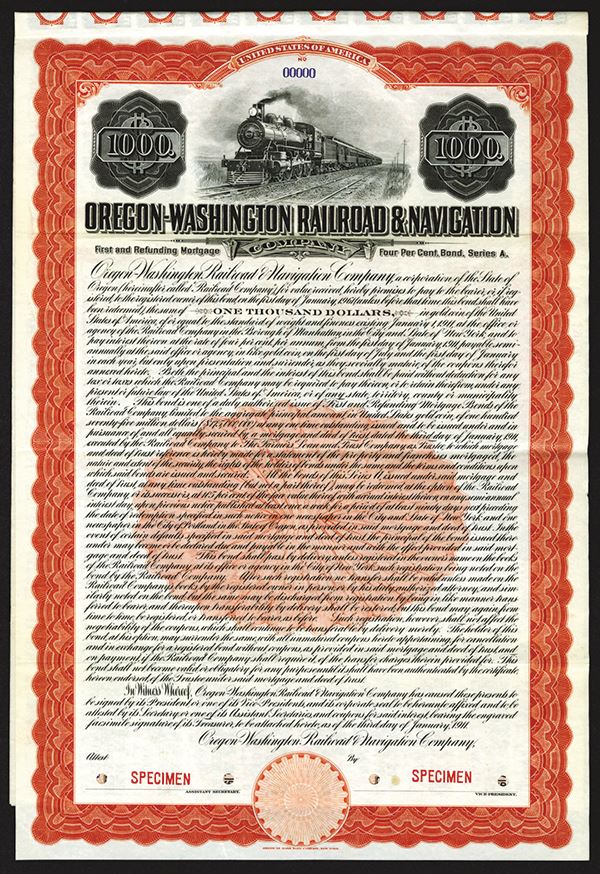 UNITED STATES OF AMERICA
NO
00000
1000. 1000.
OREGON-WASHINGTON RAILROAD & NAVIGATION
COMPANY
First and Refunding Mortgage Four Per Cent. Bond, Series A.
Oregon-Washington Railroad & Navigation Company, a corporation of the State of
Oregon (hereinafter called Railroad Company), for value received, hereby promises to pay to the bearer, or, if regis-
tered, to the registered owner of this bond, on the first day of January, 1961 (unless before that time this bond shall have
been redeemed), the sum of ONE THOUSAND DOLLARS, in gold coin of the United
States of America, of or equal to the standard of weight and fineness existing January 1, 1911, at the office or
agency of the Railroad Company in the Borough of Manhattan, in the City and State of New York, and to
pay interest thereon at the rate of four per cent. per annum, from the first day of January, 1911, payable semi-
annually at the said office or agency, in like gold coin, on the first day of July and the first day of January
in each year, but only upon presentation and surrender, as they severally mature, of the coupons therefor
annexed hereto. Both the principal and the interest of this bond shall be paid without deduction for any
tax or taxes which the Railroad Company may be required to pay thereon, or to retain therefrom, under any
present or future law of the United States of America, or of any state, territory, county or municipality
therein. This bond is one of a duly authorized issue of First and Refunding Mortgage Bonds of the
Railroad Company, limited to the aggregate principal amount in United States gold coin, of one hundred
seventy-five million dollars ($175,000,000) at any one time outstanding, issued and to be issued under and in
pursuance of, and all equally secured by, a mortgage and deed of trust dated the third day of January, 1911,
executed by the Railroad Company to The Farmers' Loan and Trust Company, as Trustee, to which mortgage
and deed of trust reference is hereby made for a statement of the property and franchises mortgaged, the
nature and extent of the security, the rights of the holders of bonds under the same and the terms and conditions upon
which said bonds are issued and secured. All the bonds of this Series A issued under said mortgage and
deed of trust, at any time outstanding (but not a part thereof), may be redeemed at the option of the Railroad
Company, or its successors, at 105 per cent. of the face value thereof, with accrued interest thereon, on any semi-annual
interest day, upon previous notice published at least once a week for a period of at least ninety days next preceding
the date of redemption specified in such notice, in one newspaper in the City and State of New York and one
newspaper in the City of Portland in the State of Oregon, as provided in said mortgage and deed of trust. In the
event of certain defaults specified in said mortgage and deed of trust the principal of the bonds issued there-
under may become or be declared due and payable in the manner and with the effect provided in said mort-
gage and deed of trust. This bond shall pass by delivery unless registered in the owner's name on the books
of the Railroad Company at its office or agency in the City of New York, such registration being noted on the
bond by the Railroad Company. After such registration no transfer shall be valid unless made on the
Railroad Company's books by the registered owner in person, or by his duly authorized attorney, and sim-
ilarly noted on the bond; but the same may be discharged from registration by being in like manner trans-
ferred to bearer, and thereupon transferability by delivery shall be restored; but this bond may again, from
time to time, be registered, or transferred to bearer, as before. Such registration, however, shall not affect the
negotiability of the coupons, which shall continue to be transferable by delivery merely. The holder of this
bond, at his option, may surrender the same, with all unmatured coupons hereto appertaining, for cancellation
and in exchange for a registered bond without coupons, as provided in said mortgage and deed of trust, and
on payment, if the Railroad Company shall require it, of the transfer charges therein provided for. This
bond shall not become valid or obligatory for any purpose until it shall have been authenticated by the certificate
hereon endorsed, of the Trustee under said mortgage and deed of trust.
In Witness Whereof, Oregon-Washington Railroad & Navigation Company has caused these presents to
be signed by its President or one of its Vice-Presidents, and its corporate seal to be hereunto affixed and to be
attested by its Secretary or one of its Assistant Secretaries, and coupons for said interest, bearing the engraved
facsimile signature of its Treasurer, to be attached hereto, as of the third day of January, 1911.
Oregon-Washington Railroad & Navigation Company,
Attest By
SPECIMEN SPECIMEN
ASSISTANT SECRETARY. VICE-PRESIDENT.